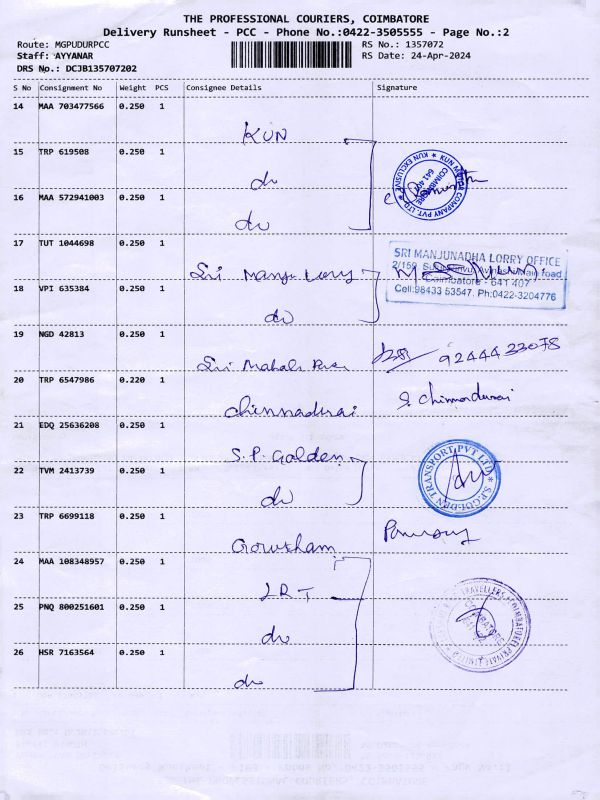 THE PROFESSIONAL COURIERS, COIMBATORE
Delivery Runsheet - PCC - Phone No.:0422-3505555 - Page No.:2
Route: MGPUDURPCC RS No.: 1357072
Staff: AYYANAR RS Date: 24-Apr-2024
DRS No.: DCJB135707202
S No Consignment No Weight PCS Consignee Details Signature
14 MAA 703477566 0.250 1
KUN
15 TRP 619508 0.250 1
do
16 MAA 572941003 0.250 1
do
KUN MOTOR COMPANY PVT. LTD. ★ KUN EXCLUSIVE ★
COIMBATORE
641 407
17 TUT 1044698 0.250 1
Sri Manju Lorry
SRI MANJUNADHA LORRY OFFICE
2/159, Avinashi Main road
Coimbatore - 641 407
Cell:98433 53547. Ph:0422-3204776
18 VPI 635384 0.250 1
do
19 NGD 42813 0.250 1
Sri Mahal 9244433078
20 TRP 6547986 0.220 1
Chinnadurai S. Chinnadurai
21 EDQ 25636208 0.250 1
S.P. Golden
22 TVM 2413739 0.250 1
do
S.P.GOLDEN TRANSPORT PVT LTD
23 TRP 6699118 0.250 1
Gowtham
24 MAA 108348957 0.250 1
LRT
25 PNQ 800251601 0.250 1
do
TRAVELLERS (COIMBATORE) PRIVATE LIMITED
26 HSR 7163564 0.250 1
do